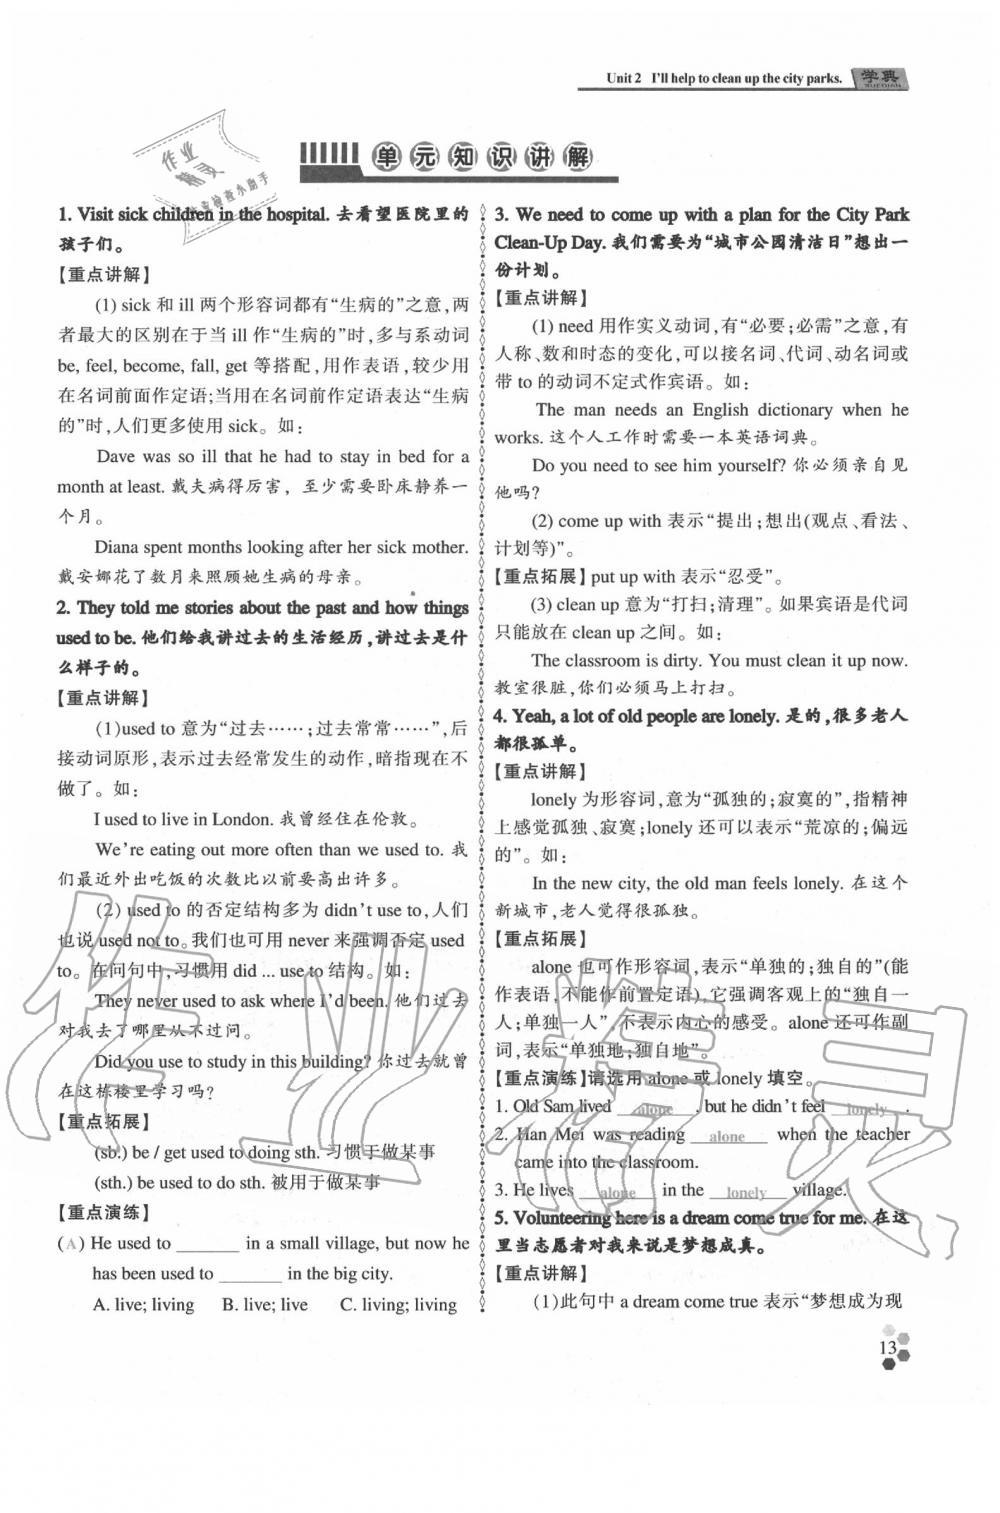 Unit 2 I'll help to clean up the city parks. 学典
XUEDIAN
单元知识讲解
作业
精灵
作业检查小助手
1. Visit sick children in the hospital. 去看望医院里的
孩子们。
【重点讲解】
(1) sick 和 ill 两个形容词都有“生病的”之意,两
者最大的区别在于当 ill 作“生病的”时,多与系动词
be, feel, become, fall, get 等搭配,用作表语,较少用
在名词前面作定语;当用在名词前作定语表达“生病
的”时,人们更多使用 sick。如:
Dave was so ill that he had to stay in bed for a
month at least. 戴夫病得厉害，至少需要卧床静养一
个月。
Diana spent months looking after her sick mother.
戴安娜花了数月来照顾她生病的母亲。
2. They told me stories about the past and how things
used to be. 他们给我讲过去的生活经历,讲过去是什
么样子的。
【重点讲解】
(1)used to 意为“过去……;过去常常……”,后
接动词原形,表示过去经常发生的动作,暗指现在不
做了。如:
I used to live in London. 我曾经住在伦敦。
We're eating out more often than we used to. 我
们最近外出吃饭的次数比以前要高出许多。
(2) used to 的否定结构多为 didn't use to,人们
也说 used not to。我们也可用 never 来强调否定 used
to。在问句中,习惯用 did ... use to 结构。如:
They never used to ask where I'd been. 他们过去
对我去了哪里从不过问。
Did you use to study in this building? 你过去就曾
在这栋楼里学习吗?
【重点拓展】
(sb.) be / get used to doing sth. 习惯于做某事
(sth.) be used to do sth. 被用于做某事
【重点演练】
(A) He used to ______ in a small village, but now he
has been used to ______ in the big city.
A. live; living B. live; live C. living; living
3. We need to come up with a plan for the City Park
Clean-Up Day. 我们需要为“城市公园清洁日”想出一
份计划。
【重点讲解】
(1) need 用作实义动词,有“必要;必需”之意,有
人称、数和时态的变化,可以接名词、代词、动名词或
带 to 的动词不定式作宾语。如:
The man needs an English dictionary when he
works. 这个人工作时需要一本英语词典。
Do you need to see him yourself? 你必须亲自见
他吗?
(2) come up with 表示“提出;想出(观点、看法、
计划等)”。
【重点拓展】put up with 表示“忍受”。
(3) clean up 意为“打扫;清理”。如果宾语是代词
只能放在 clean up 之间。如:
The classroom is dirty. You must clean it up now.
教室很脏,你们必须马上打扫。
4. Yeah, a lot of old people are lonely. 是的,很多老人
都很孤单。
【重点讲解】
lonely 为形容词,意为“孤独的;寂寞的”,指精神
上感觉孤独、寂寞;lonely 还可以表示“荒凉的;偏远
的”。如:
In the new city, the old man feels lonely. 在这个
新城市,老人觉得很孤独。
【重点拓展】
alone 也可作形容词,表示“单独的;独自的”(能
作表语,不能作前置定语),它强调客观上的“独自一
人;单独一人”,不表示内心的感受。alone 还可作副
词,表示“单独地;独自地”。
【重点演练】请选用 alone 或 lonely 填空。
1. Old Sam lived alone , but he didn't feel lonely .
2. Han Mei was reading alone when the teacher
came into the classroom.
3. He lives alone in the lonely village.
5. Volunteering here is a dream come true for me. 在这
里当志愿者对我来说是梦想成真。
【重点讲解】
(1)此句中 a dream come true 表示“梦想成为现
13
作业精灵